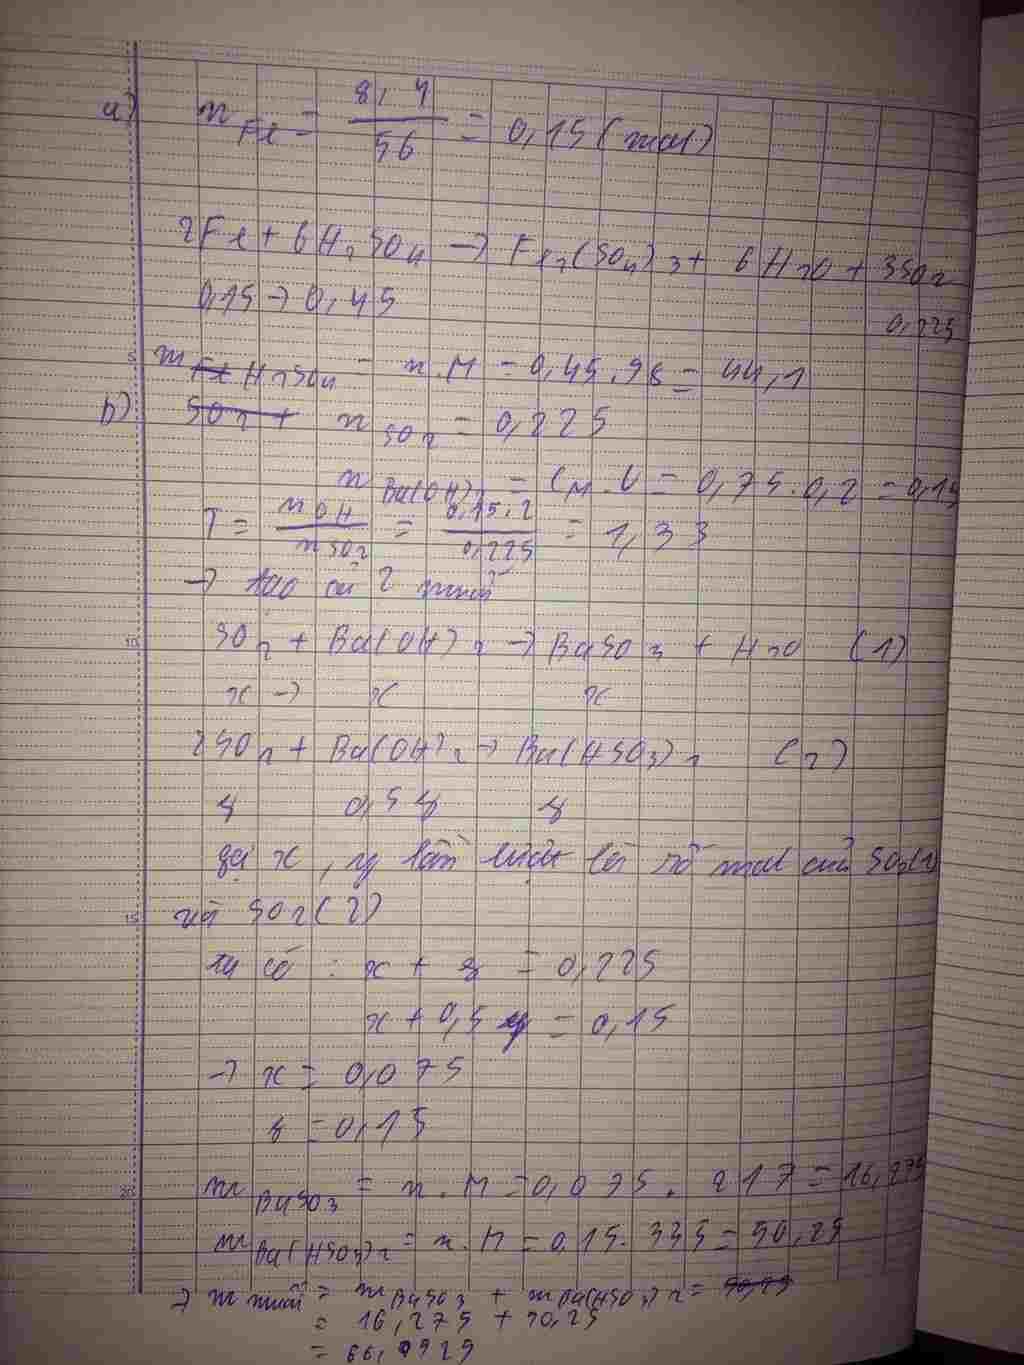 a) n Fe = 8,4 / 56 = 0,15 (mol)
2Fe + 6H2SO4 → Fe2(SO4)3 + 6H2O + 3SO2
0,15 → 0,45 0,225
m H2SO4 = n.M = 0,45.98 = 44,1
b) SO2 + n SO2 = 0,225
n Ba(OH)2 = CM.V = 0,75.0,2 = 0,15
T = nOH / nSO2 = 0,15.2 / 0,225 = 1,33
→ tạo cả 2 muối
SO2 + Ba(OH)2 → BaSO3 + H2O (1)
x → x x
2SO2 + Ba(OH)2 → Ba(HSO3)2 (2)
y 0,5y y
gọi x, y lần lượt là số mol của SO2(1)
và SO2(2)
ta có : x + y = 0,225
x + 0,5y = 0,15
→ x = 0,075
y = 0,15
m BaSO3 = n.M = 0,075. 217 = 16,275
m Ba(HSO3)2 = n.M = 0,15.335 = 50,25
→ m muối = m BaSO3 + m Ba(HSO3)2 =
= 16,275 + 50,25